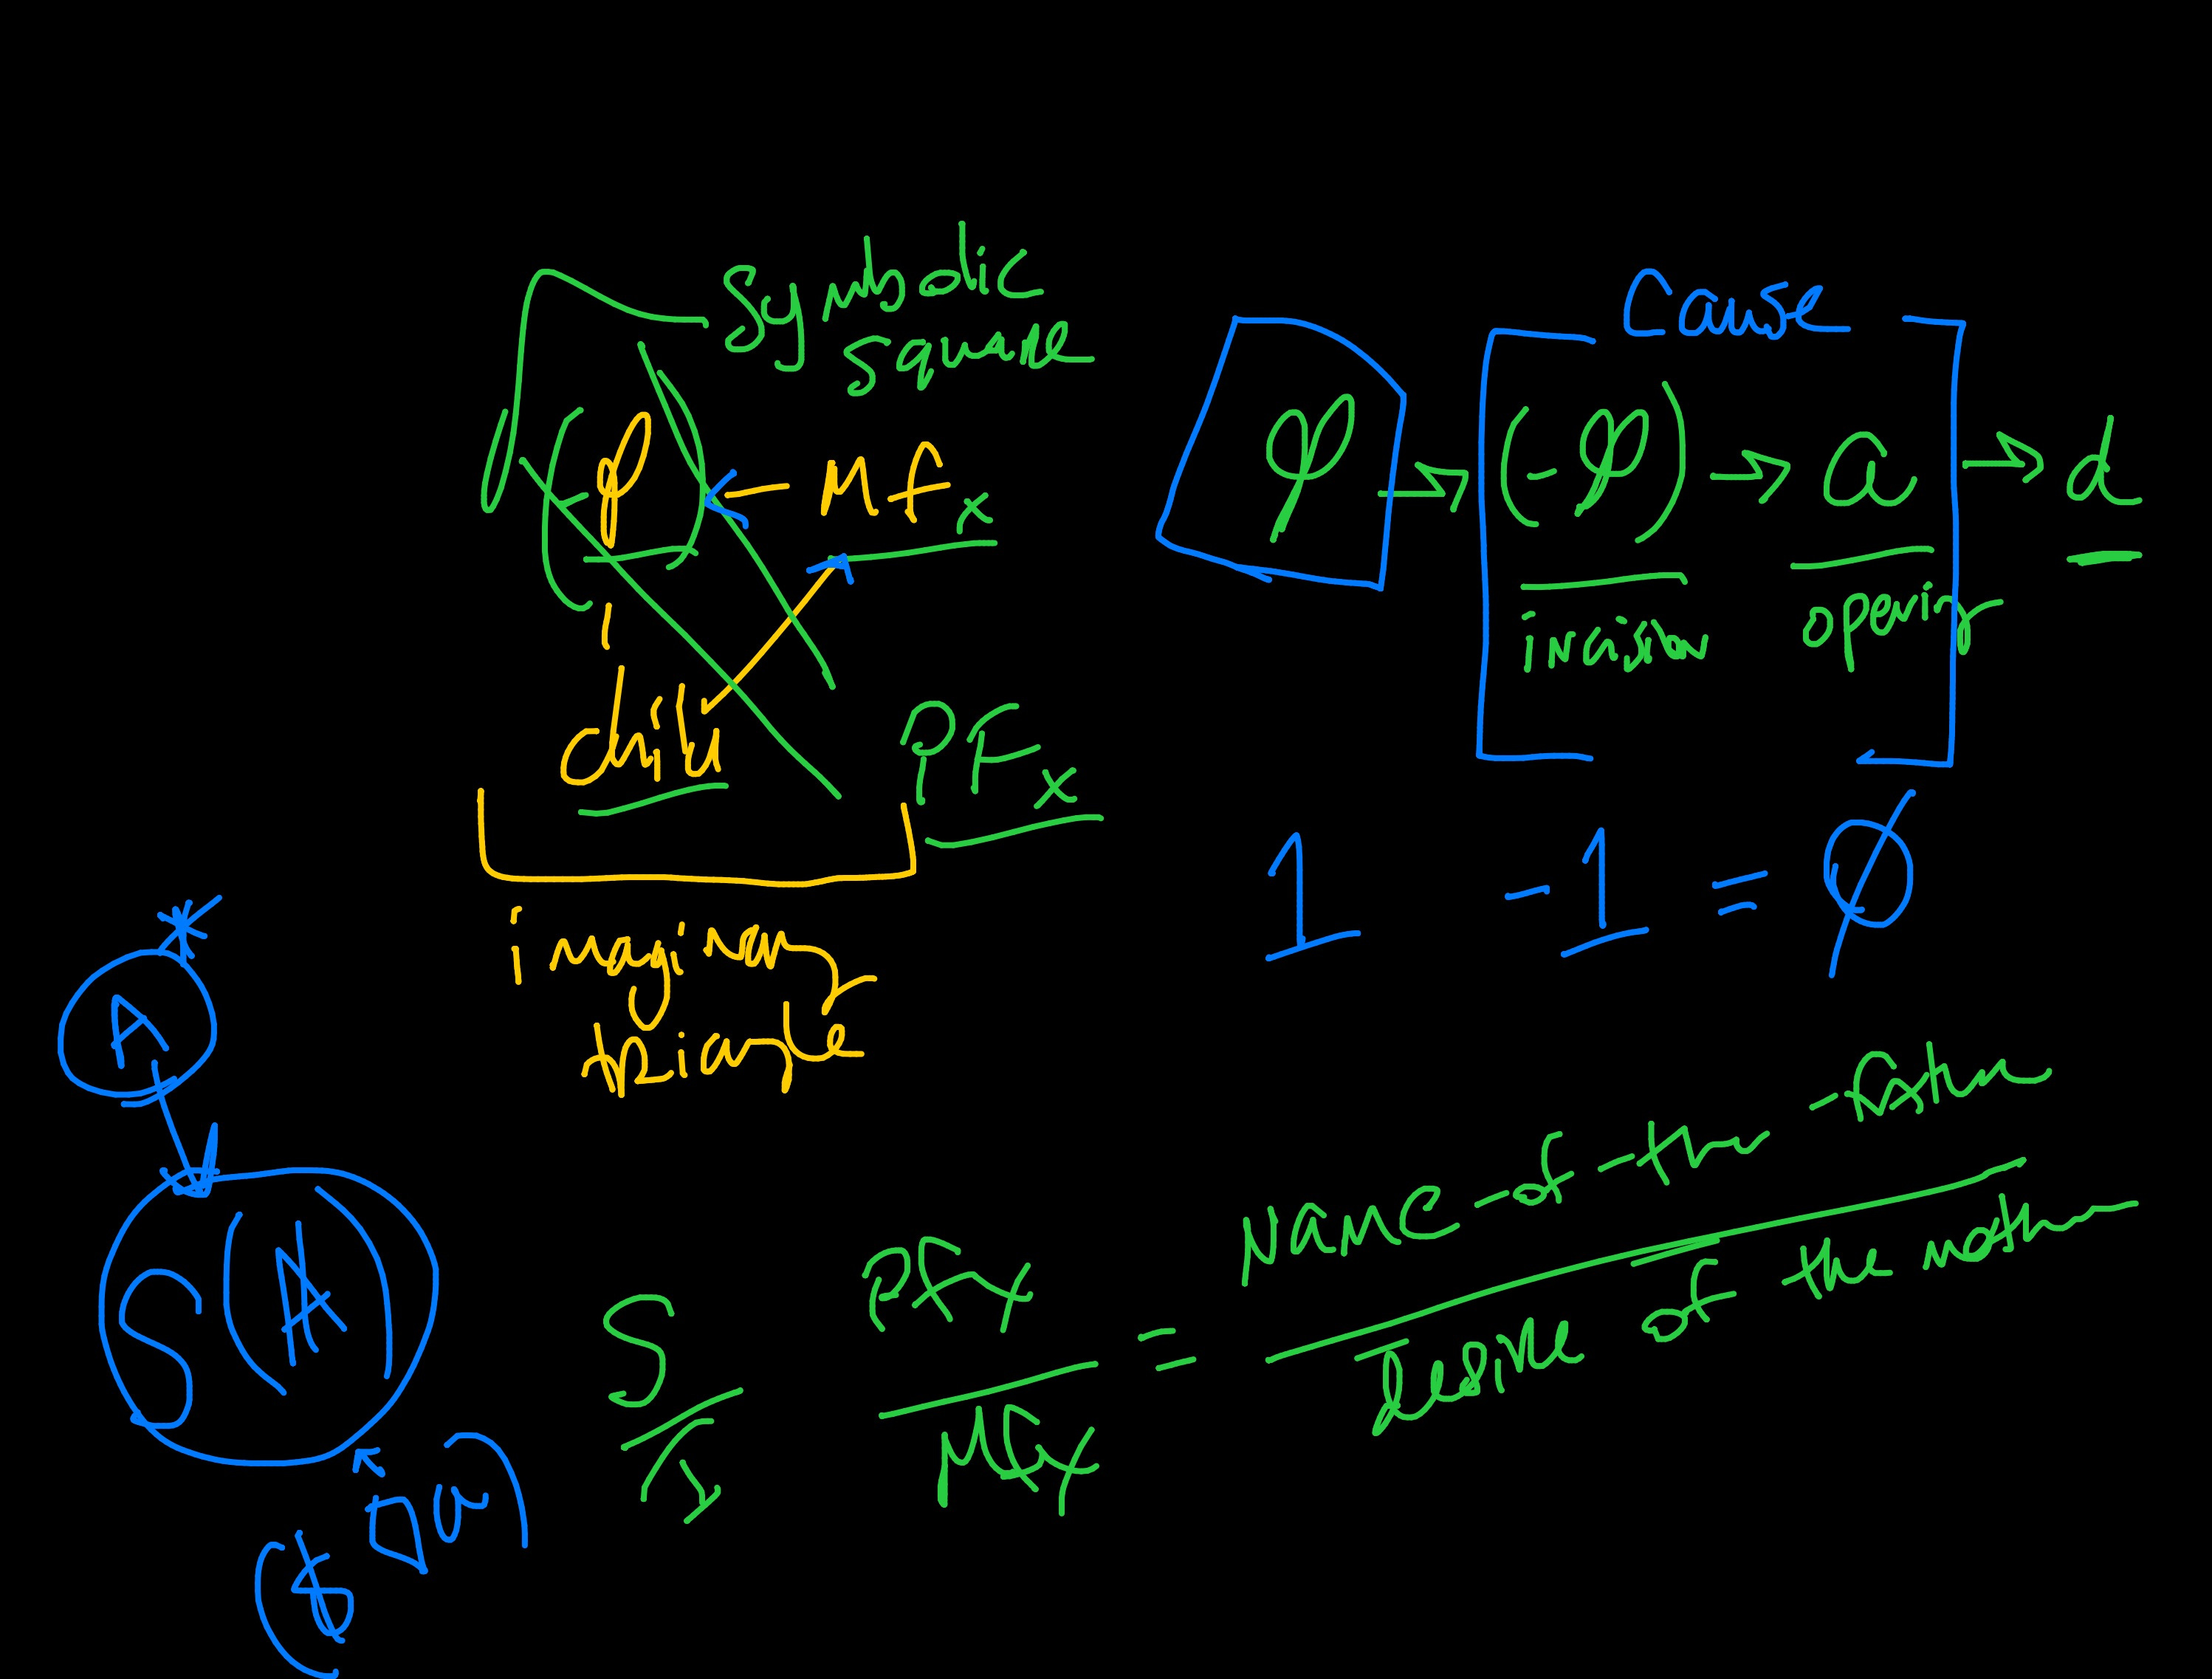 Symbolic
square
(-φ) - MFx
child
PFx
imaginary
triangle
Cause
φ → (-φ) → a → d
incision opening
1 -1 = Ø
A *
S(Ⱥ)
($ ◇ a)
S
I
PFx
MFx
=
Name-of-the-Father
Desire of the mother